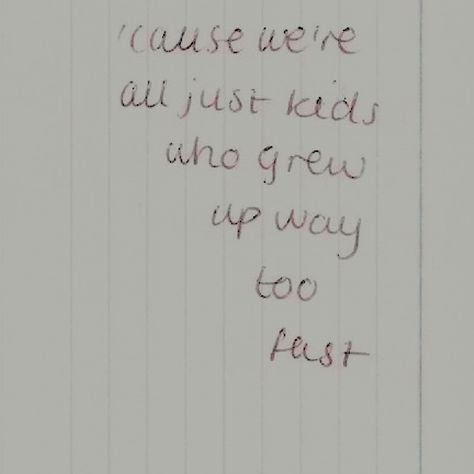 'cause we're
all just kids
who grew
up way
too
fast